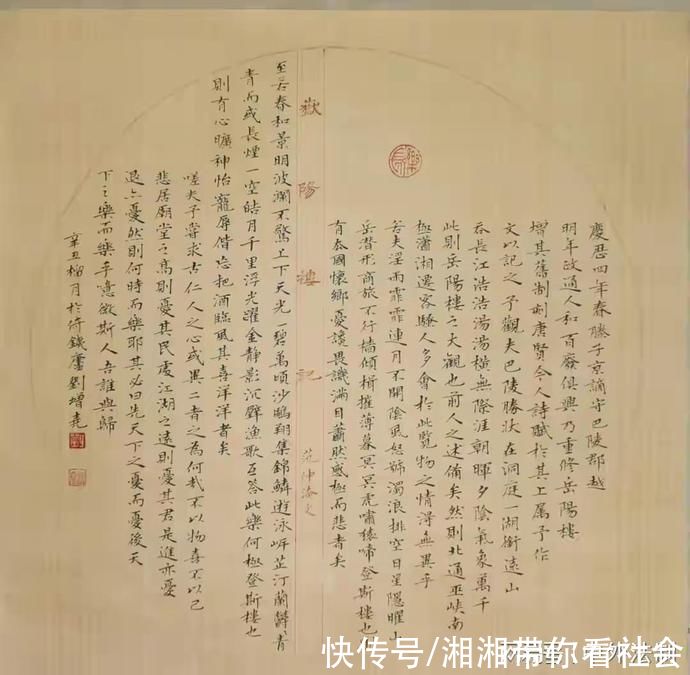 慶曆四年春滕子京謫守巴陵郡越
明年政通人和百廢俱興乃重修岳陽樓
增其舊制刻唐賢今人詩賦於其上属予作
文以記之予觀夫巴陵勝狀在洞庭一湖銜遠山
吞長江浩浩湯湯橫無際涯朝暉夕陰氣象萬千
此則岳陽樓之大觀也前人之述備矣然則北通巫峽南
極瀟湘遷客騷人多會於此覽物之情得無異乎
若夫淫雨霏霏連月不開陰風怒號濁浪排空日星隱曜山
岳潛形商旅不行檣傾楫摧薄暮冥冥虎嘯猿啼登斯樓也則
有去國懷鄉憂讒畏譏滿目蕭然感極而悲者矣
嶽陽樓記
范仲淹文
至若春和景明波瀾不驚上下天光一碧萬頃沙鷗翔集錦鱗遊泳岸芷汀蘭鬱青
青而或長煙一空皓月千里浮光躍金靜影沉璧漁歌互答此樂何極登斯樓也
則有心曠神怡寵辱偕忘把酒臨風其喜洋洋者矣
嗟夫予嘗求古仁人之心或異二者之為何哉不以物喜不以己
悲居廟堂之高則憂其民處江湖之遠則憂其君是進亦憂
退亦憂然則何時而樂耶其必曰先天下之憂而憂後天
下之樂而樂乎噫微斯人吾誰與歸
辛丑榴月於倚鐵廬劉增堯
快传号/湘湘带你看社会